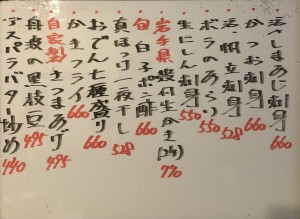 活〆しまあじ刺身 660
かつお刺身 660
活・帆立刺身 528
ボラのあらい 550
生にしん刺身 550
岩手県殻付生かき(2ヶ) 770
旬 白子ポン酢 660
真ほっけ一夜干し 528
おでん七種盛り 660
かきフライ 660
自家製さつまあげ 495
自家の黒枝豆 495
アスパラバター炒め 440